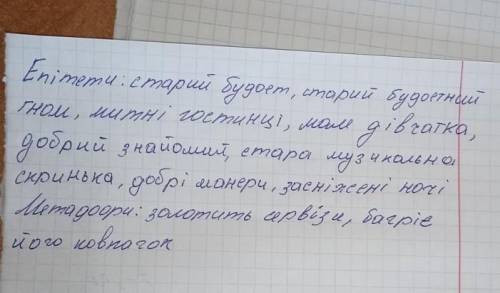 Епітети: старий будоет, старий будоетний
гном, митні гостинці, мам дівчатка,
добрий знайомий, стара музикольна
скринька, добрі манери, засніжені ночі
Метадоори: золотить сервізи, багріє
його ковпачок